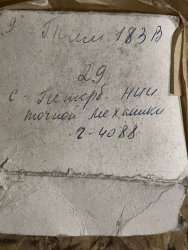 183В
29
С-Петерб. НИИ
точной механики
2-4088